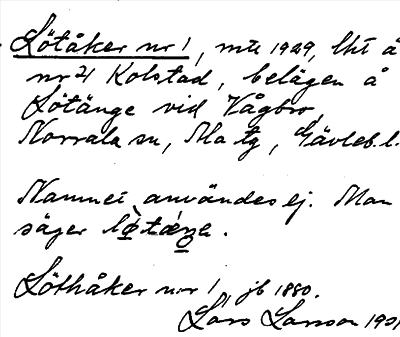 Lötåker nr 1, mtl 1929, lht å
nr 21 Kolstad, belägen å
Lötänge vid Vågbro,
Norrala sn, Ma tg, Gävleb. l.
Namnet användes ej. Man
säger
Löthåker nr 1 jb 1880.
Lars Larsson 1931